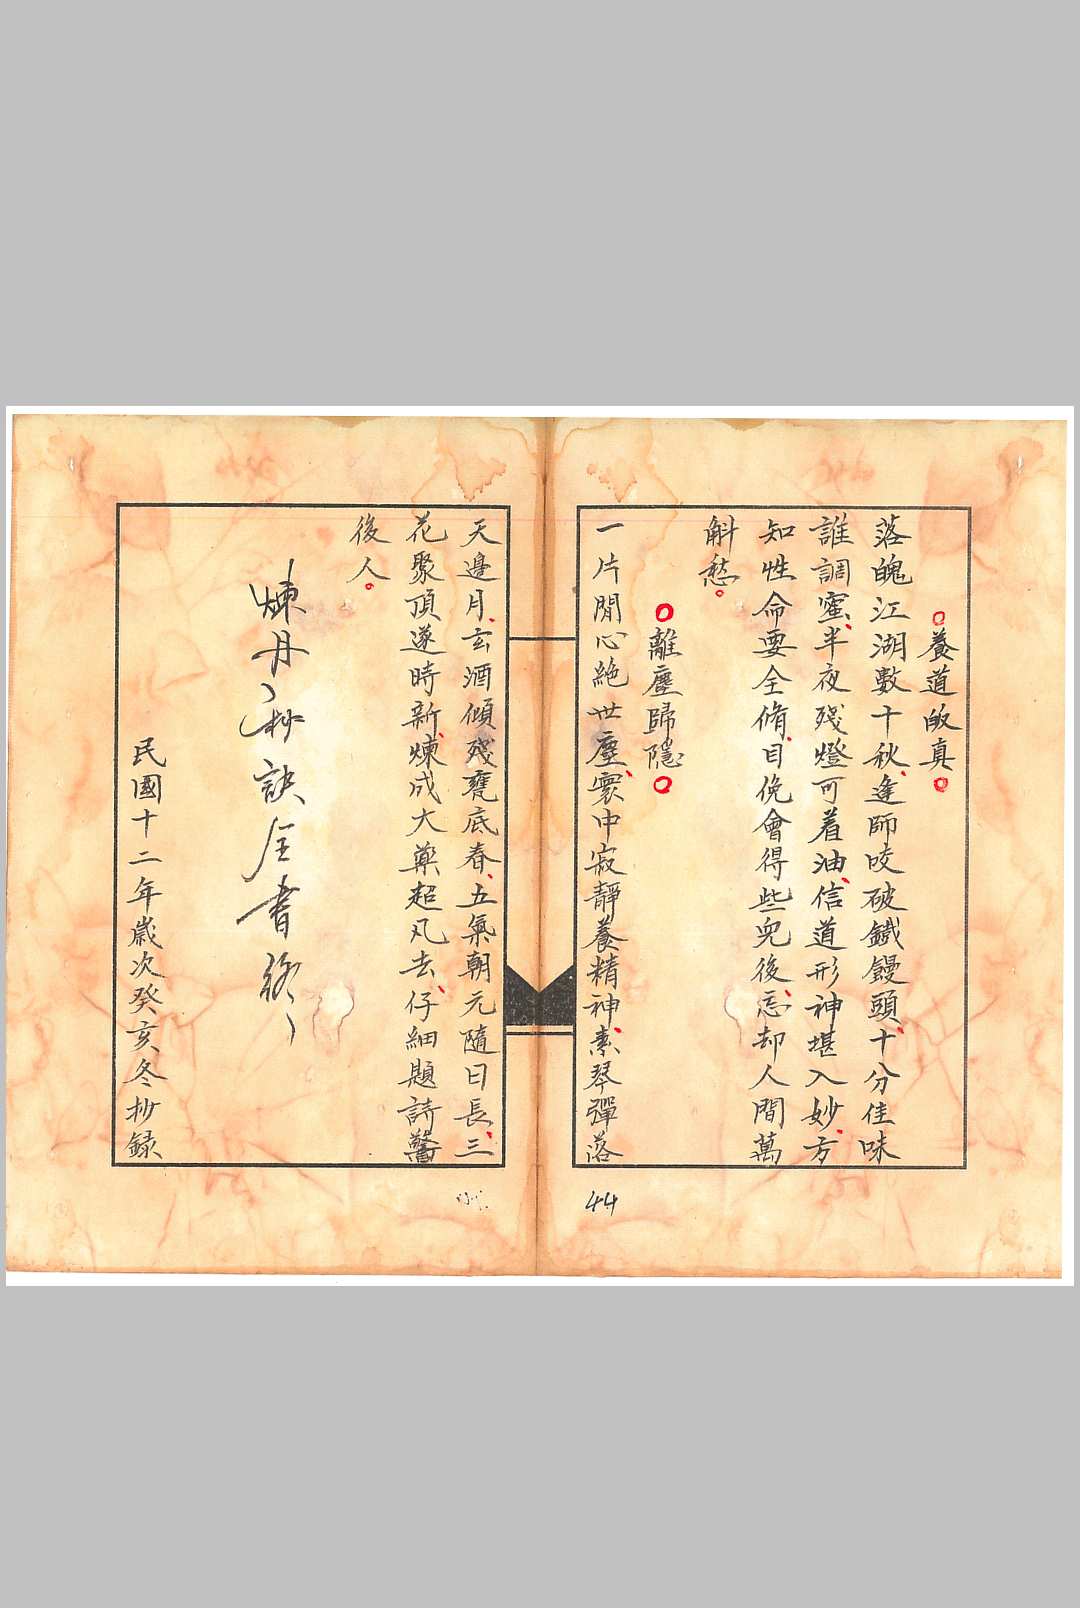 ○養道皈真○
落魄江湖數十秋、逢師咬破鐵饅頭、十分佳味
誰調蜜、半夜殘燈可着油、信道形神堪入妙、方
知性命要全脩、目俛會得些兒後、忘却人間萬
斛愁。
○離塵歸隱○
一片閒心絶世塵、寰中寂靜養精神、素琴彈落
天邊月、玄酒傾殘甕底春、五氣朝元隨日長、三
花聚頂遂時新、煉成大藥超凡去、仔細題詩警
後人。
煉丹秘訣全書終
民國十二年歲次癸亥冬抄録
44